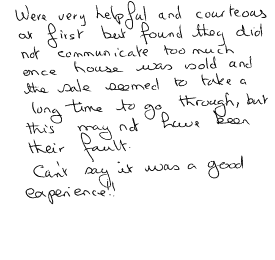 Were very helpful and courteous
at first but found they did
not communicate too much
once house was sold and
the sale seemed to take a
long time to go through, but
this may not have been
their fault.
Can't say it was a good
experience!!